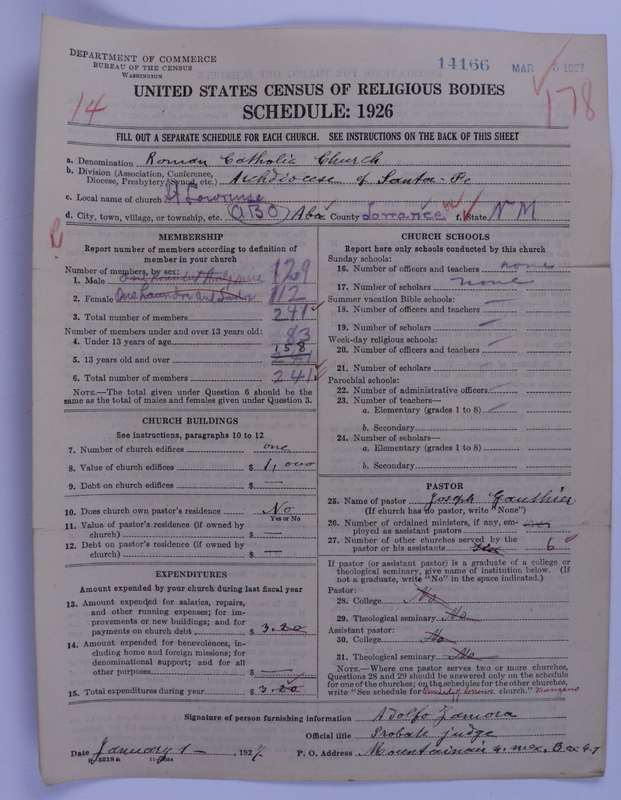 DEPARTMENT OF COMMERCE
BUREAU OF THE CENSUS
WASHINGTON
14166 MAR 5 1927
14
178
UNITED STATES CENSUS OF RELIGIOUS BODIES
SCHEDULE: 1926
FILL OUT A SEPARATE SCHEDULE FOR EACH CHURCH. SEE INSTRUCTIONS ON THE BACK OF THIS SHEET
a. Denomination Roman Catholic Church
b. Division (Association, Conference, Diocese, Presbytery, Synod, etc.) Archdiocese of Santa-Fe
c. Local name of church
d. City, town, village, or township, etc. ABO Abo County Torrance f. State N M
MEMBERSHIP
Report number of members according to definition of
member in your church
Number of members, by sex:
1. Male 129
2. Female 112
3. Total number of members 241
Number of members under and over 13 years old:
4. Under 13 years of age 83
5. 13 years old and over 158 241
6. Total number of members 241
NOTE.—The total given under Question 6 should be the
same as the total of males and females given under Question 3.
CHURCH BUILDINGS
See instructions, paragraphs 10 to 12
7. Number of church edifices one
8. Value of church edifices $ 1,000
9. Debt on church edifices $ —
10. Does church own pastor's residence No
Yes or No
11. Value of pastor's residence (if owned by
church) $ —
12. Debt on pastor's residence (if owned by
church) $ —
EXPENDITURES
Amount expended by your church during last fiscal year
13. Amount expended for salaries, repairs,
and other running expenses; for im-
provements or new buildings; and for
payments on church debt $ 3.20
14. Amount expended for benevolences, in-
cluding home and foreign missions; for
denominational support; and for all
other purposes $ —
15. Total expenditures during year $ 3.20
CHURCH SCHOOLS
Report here only schools conducted by this church
Sunday schools:
16. Number of officers and teachers none
17. Number of scholars none
Summer vacation Bible schools:
18. Number of officers and teachers —
19. Number of scholars —
Week-day religious schools:
20. Number of officers and teachers —
21. Number of scholars —
Parochial schools:
22. Number of administrative officers —
23. Number of teachers—
a. Elementary (grades 1 to 8) —
b. Secondary
24. Number of scholars—
a. Elementary (grades 1 to 8)
b. Secondary
PASTOR
25. Name of pastor Joseph Gauthier
(If church has no pastor, write "None")
26. Number of ordained ministers, if any, em-
ployed as assistant pastors
27. Number of other churches served by the
pastor or his assistants 6
If pastor (or assistant pastor) is a graduate of a college or
theological seminary, give name of institution below. (If
not a graduate, write "No" in the space indicated.)
Pastor:
28. College No
29. Theological seminary No
Assistant pastor:
30. College No
31. Theological seminary No
NOTE.—Where one pastor serves two or more churches,
Questions 28 and 29 should be answered only on the schedule
for one of the churches; on the schedules for the other churches,
write "See schedule for church." Manzano
Signature of person furnishing information Adolfo Zamora
Official title Probate judge
Date January 1 — , 1927 P. O. Address Mountainair N. Mex. Box 47
8—5518 a 11—9354